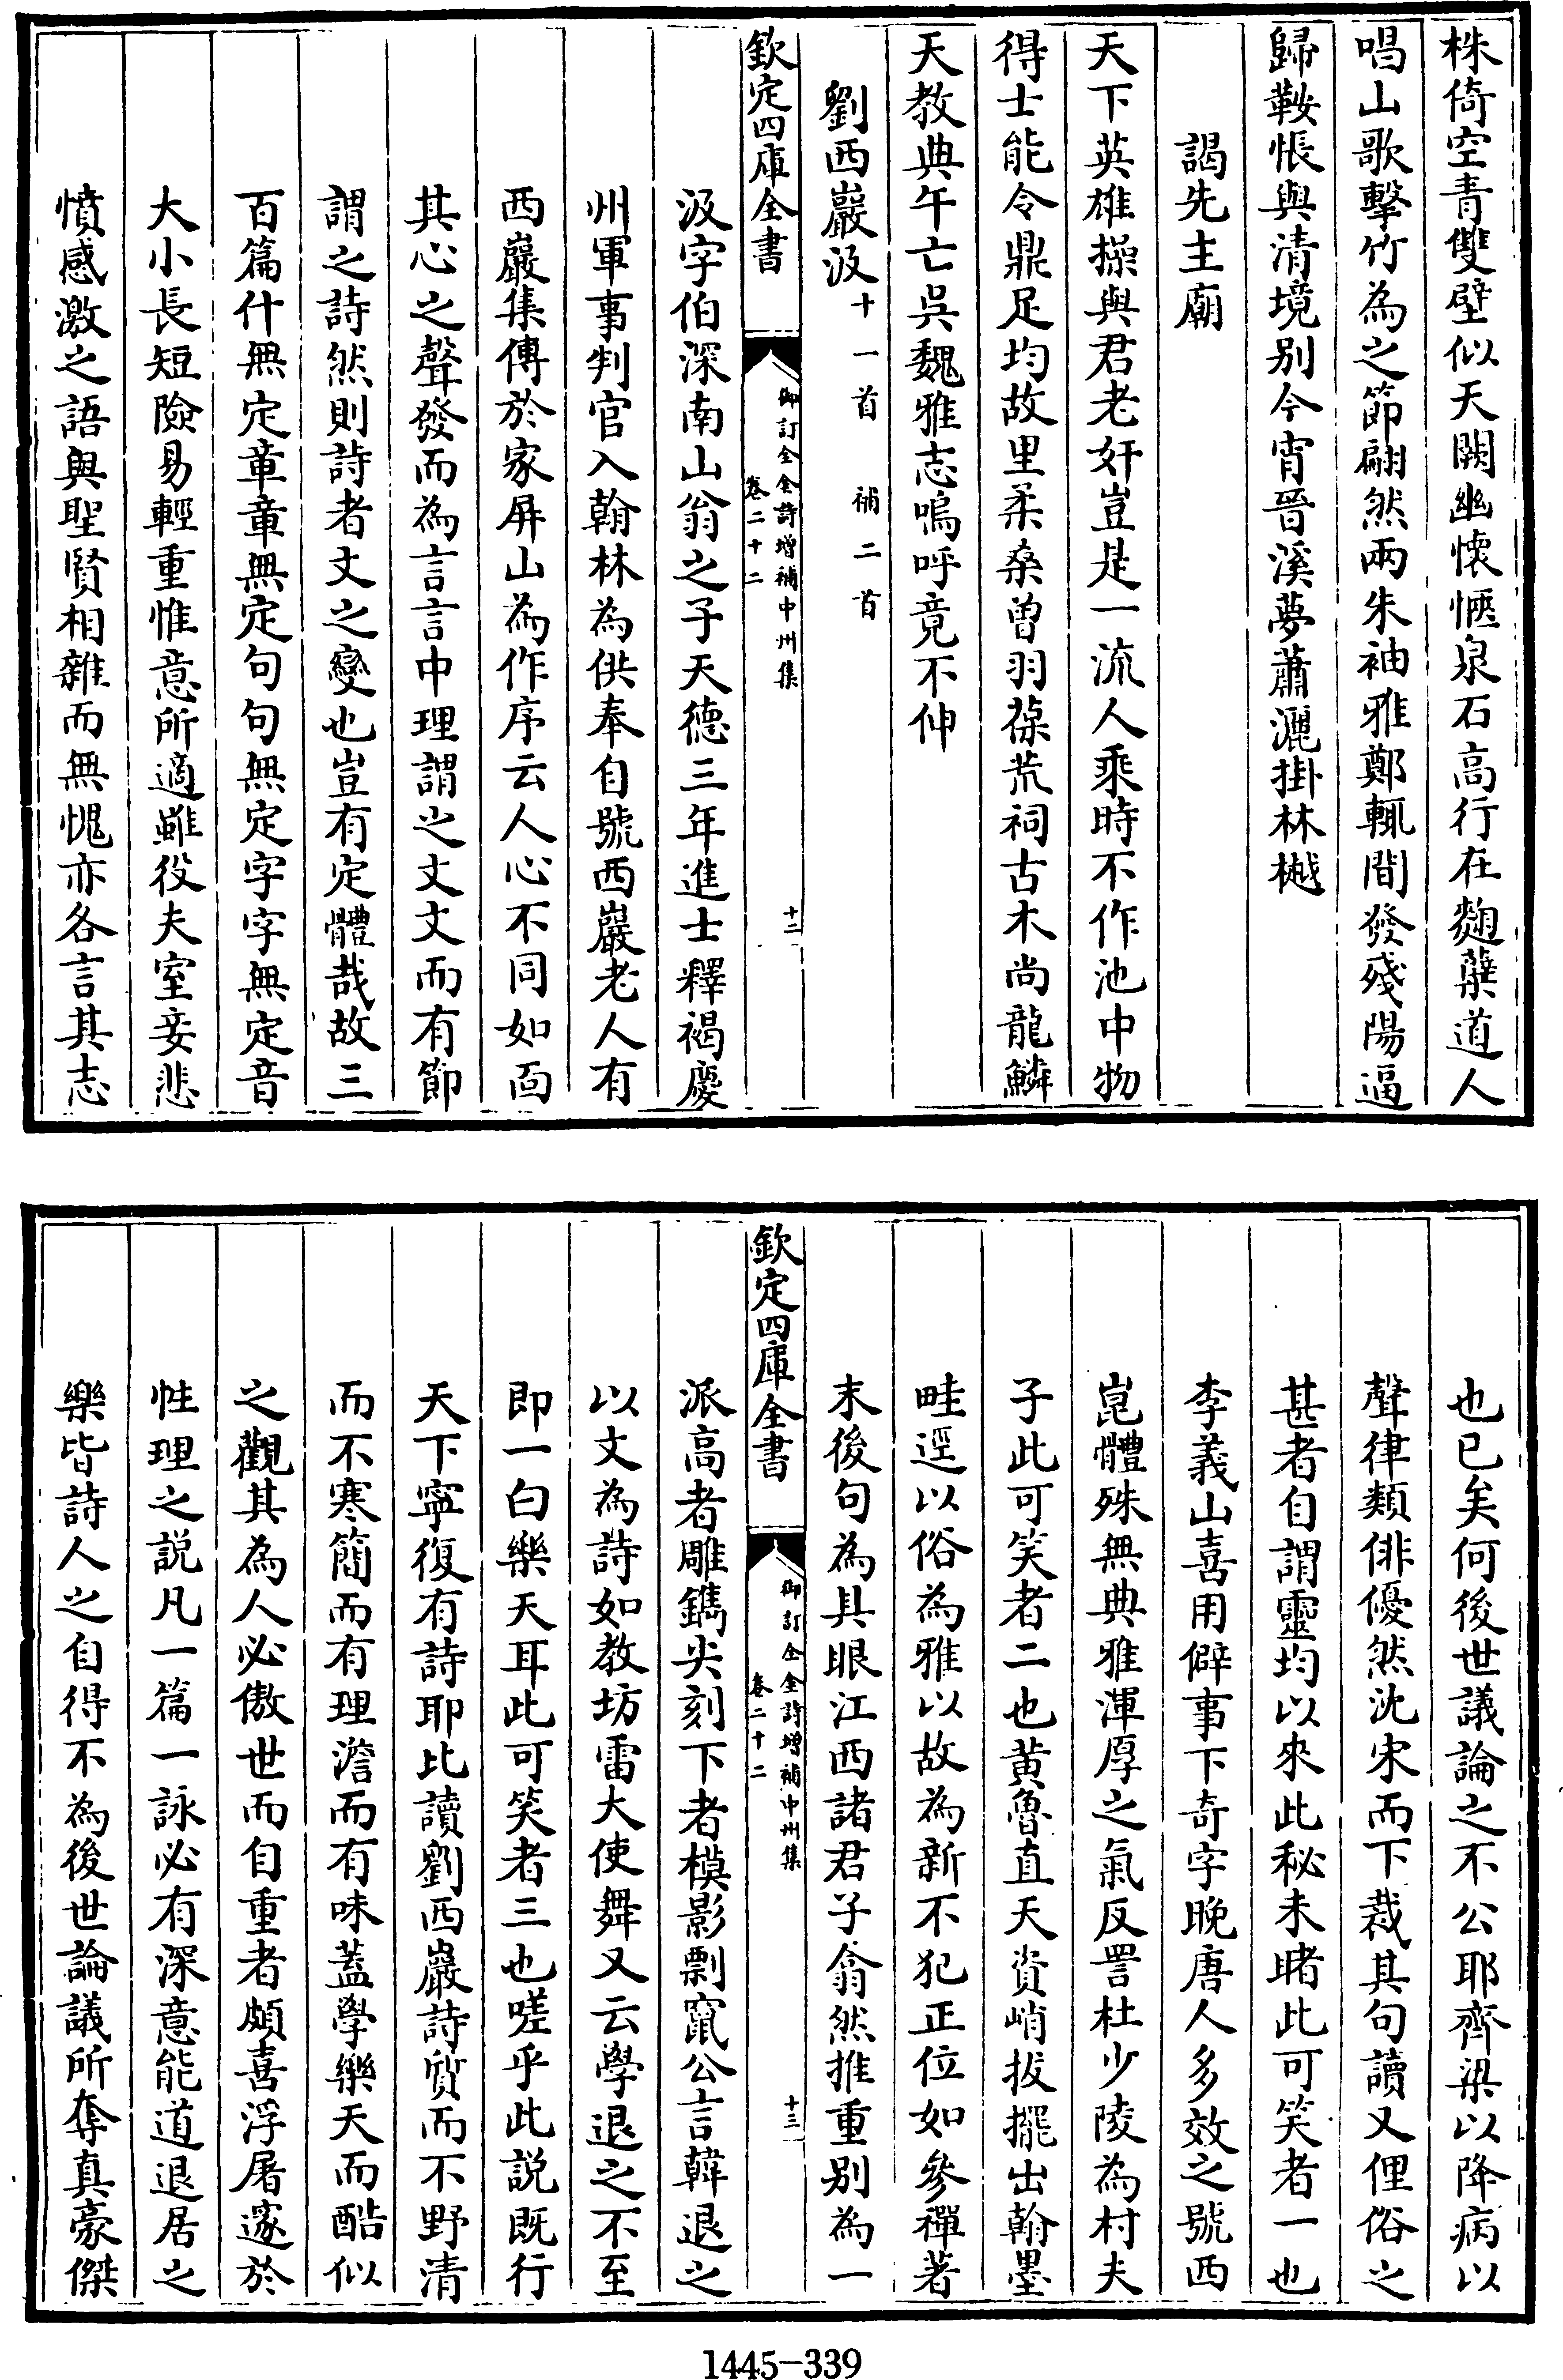 株倚空青雙壁似天闕幽懷愜泉石高行在麴蘖道人
唱山歌擊竹為之節翩然兩朱袖雅鄭輒間發殘陽逼
歸鞍悵與清境别今宵晉溪夢蕭灑掛林樾
謁先主廟
天下英雄操與君老奸豈是一流人乘時不作池中物
得士能令鼎足均故里柔桑曾羽葆荒祠古木尚龍鱗
天教典午亡吳魏雅志嗚呼竟不伸
劉西巖汲十一首 補二首
欽定四庫全書
御訂全金詩增補中州集
卷二十二
十二
汲字伯深南山翁之子天德三年進士釋褐慶
州軍事判官入翰林為供奉自號西巖老人有
西巖集傳於家屏山為作序云人心不同如面
其心之聲發而為言言中理謂之文文而有節
謂之詩然則詩者文之變也豈有定體哉故三
百篇什無定章章無定句句無定字字無定音
大小長短險易輕重惟意所適雖役夫室妾悲
憤感激之語與聖賢相雜而無愧亦各言其志
也已矣何後世議論之不公耶齊梁以降病以
聲律類俳優然沈宋而下裁其句讀又俚俗之
甚者自謂靈均以來此秘未睹此可笑者一也
李義山喜用僻事下奇字晚唐人多效之號西
崑體殊無典雅渾厚之氣反詈杜少陵為村夫
子此可笑者二也黄魯直天資峭拔擺出翰墨
畦逕以俗為雅以故為新不犯正位如參禪著
末後句為具眼江西諸君子翕然推重别為一
欽定四庫全書
御訂全金詩增補中州集
卷二十二
十三
派高者雕鐫尖刻下者模影剽竄公言韓退之
以文為詩如教坊雷大使舞又云學退之不至
即一白樂天耳此可笑者三也嗟乎此説既行
天下寧復有詩耶比讀劉西巖詩質而不野清
而不寒簡而有理澹而有味蓋學樂天而酷似
之觀其為人必傲世而自重者頗喜浮屠邃於
性理之説凡一篇一詠必有深意能道退居之
樂皆詩人之自得不為後世論議所奪真豪傑
1445-339